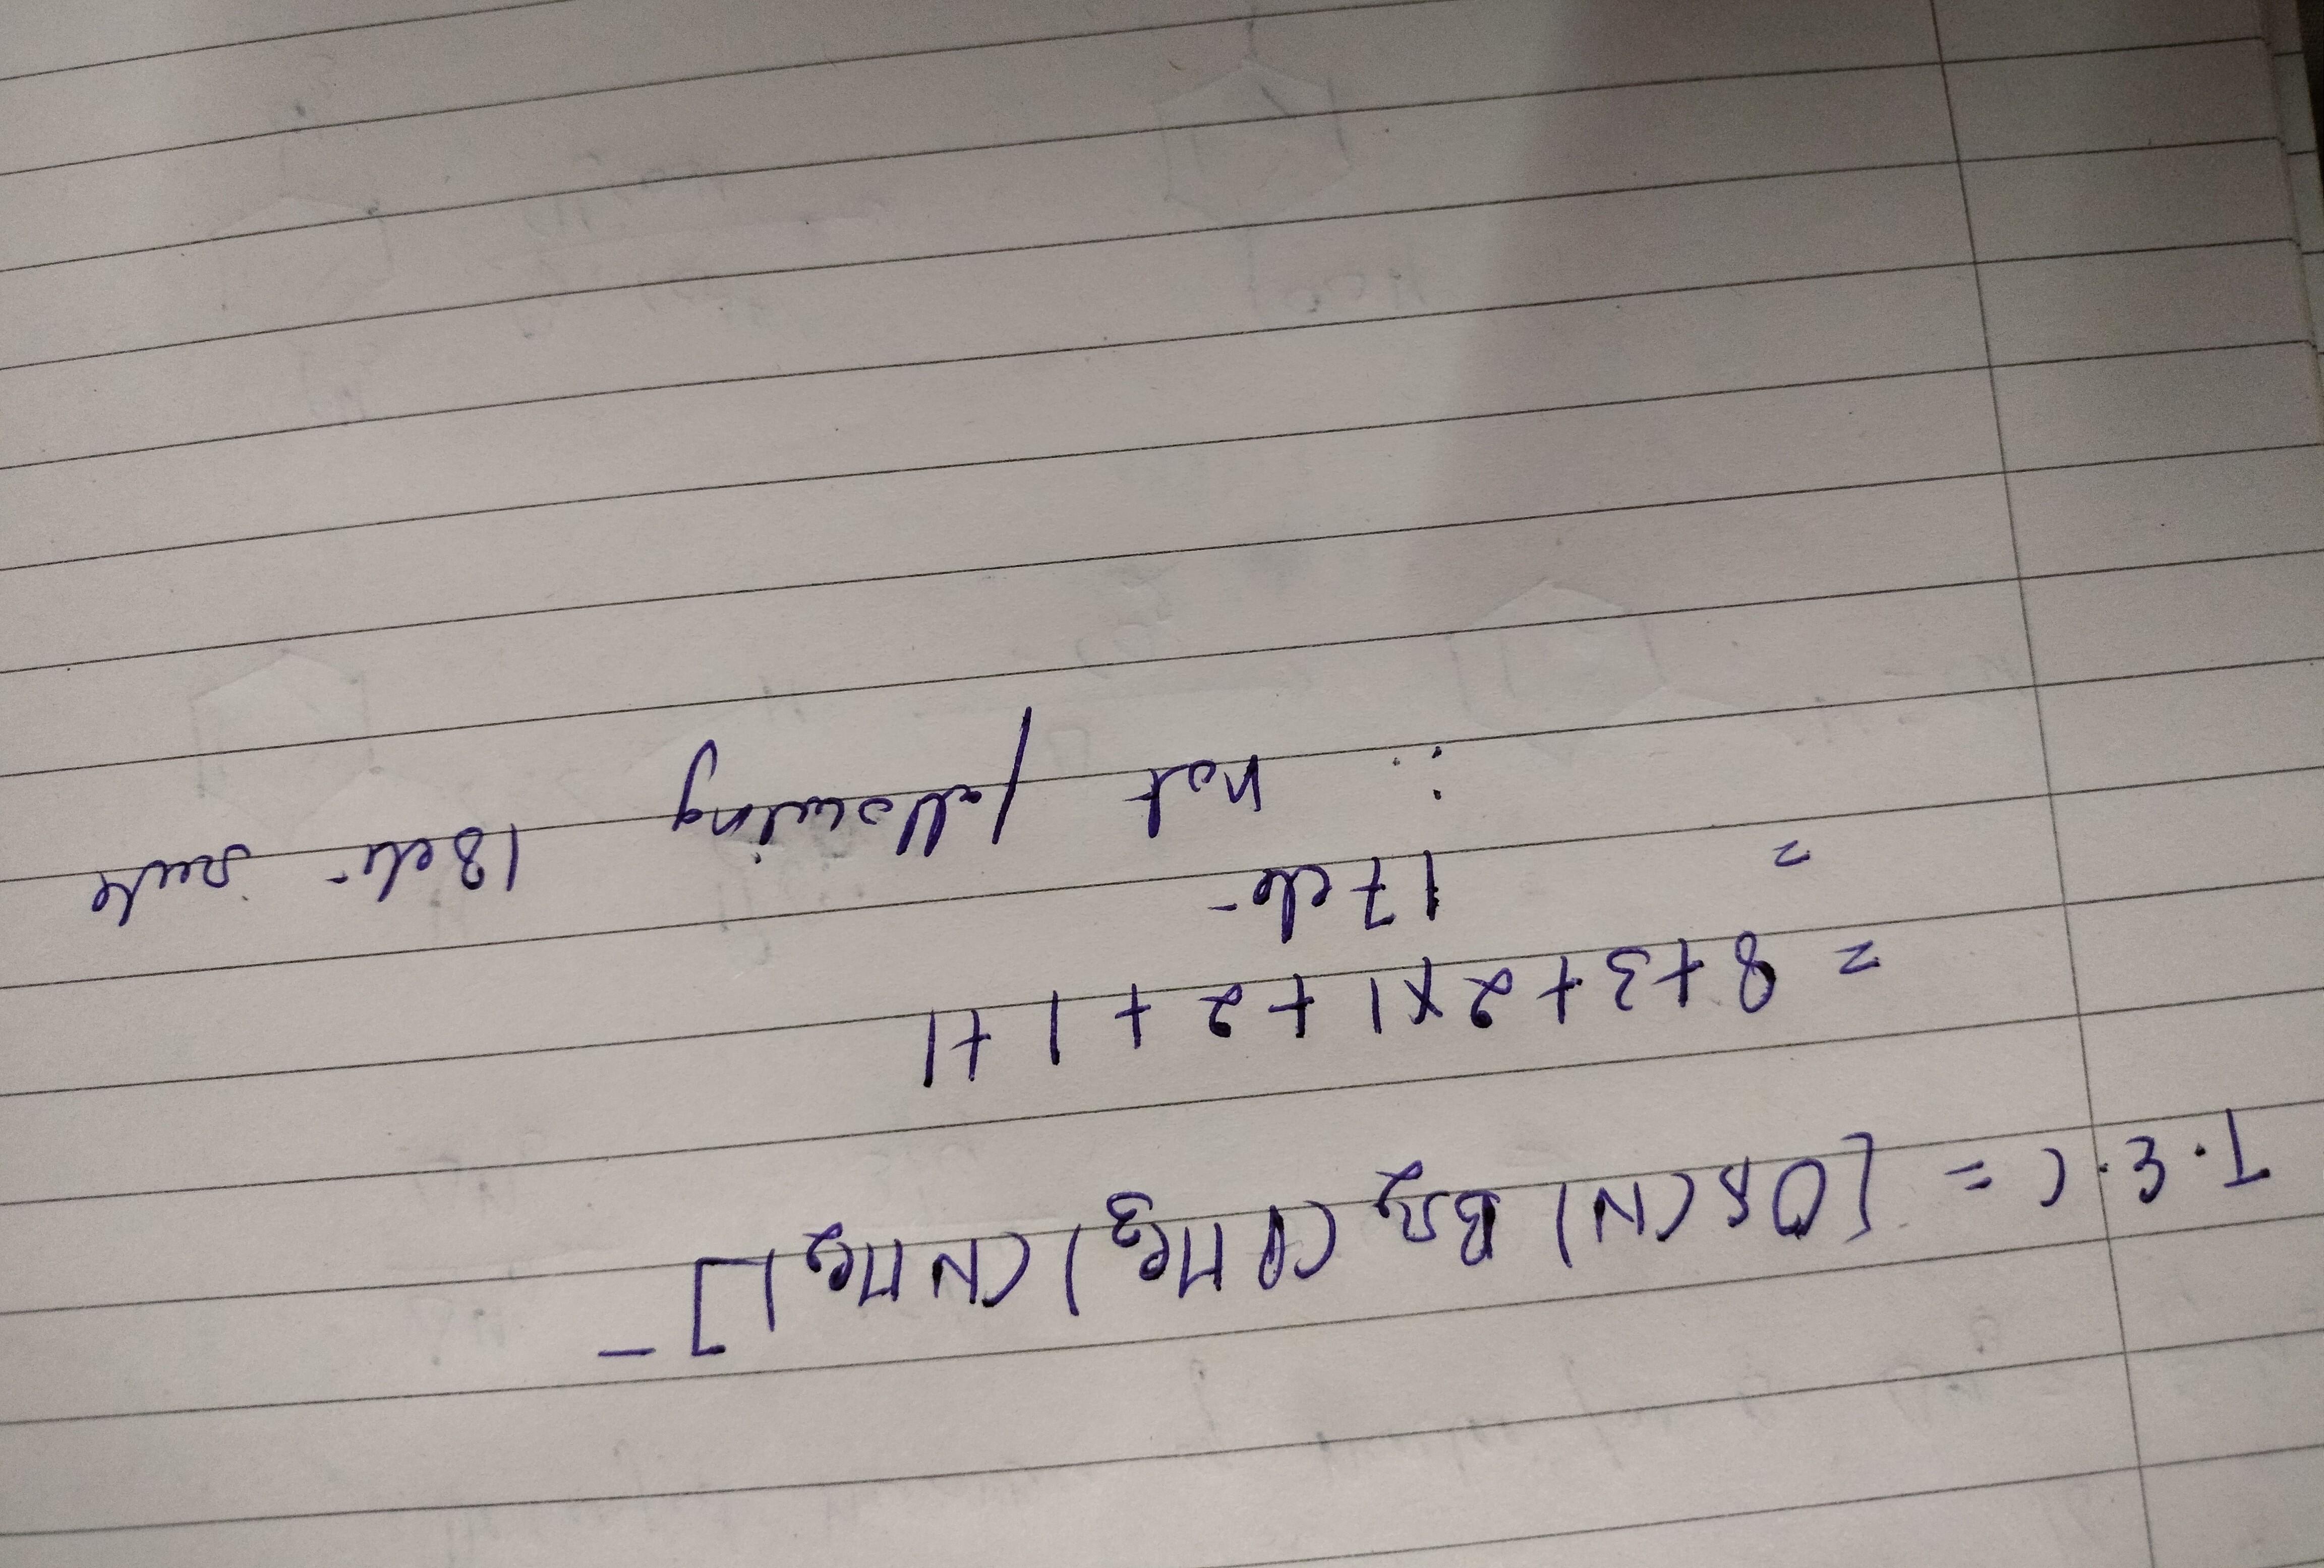 T.E.C = [OsCN) Br2 (PMe3) (NMe2)]−
= 8+3+2x1+2+1+1
= 17 ele-
∴ not following 18 ele- rule